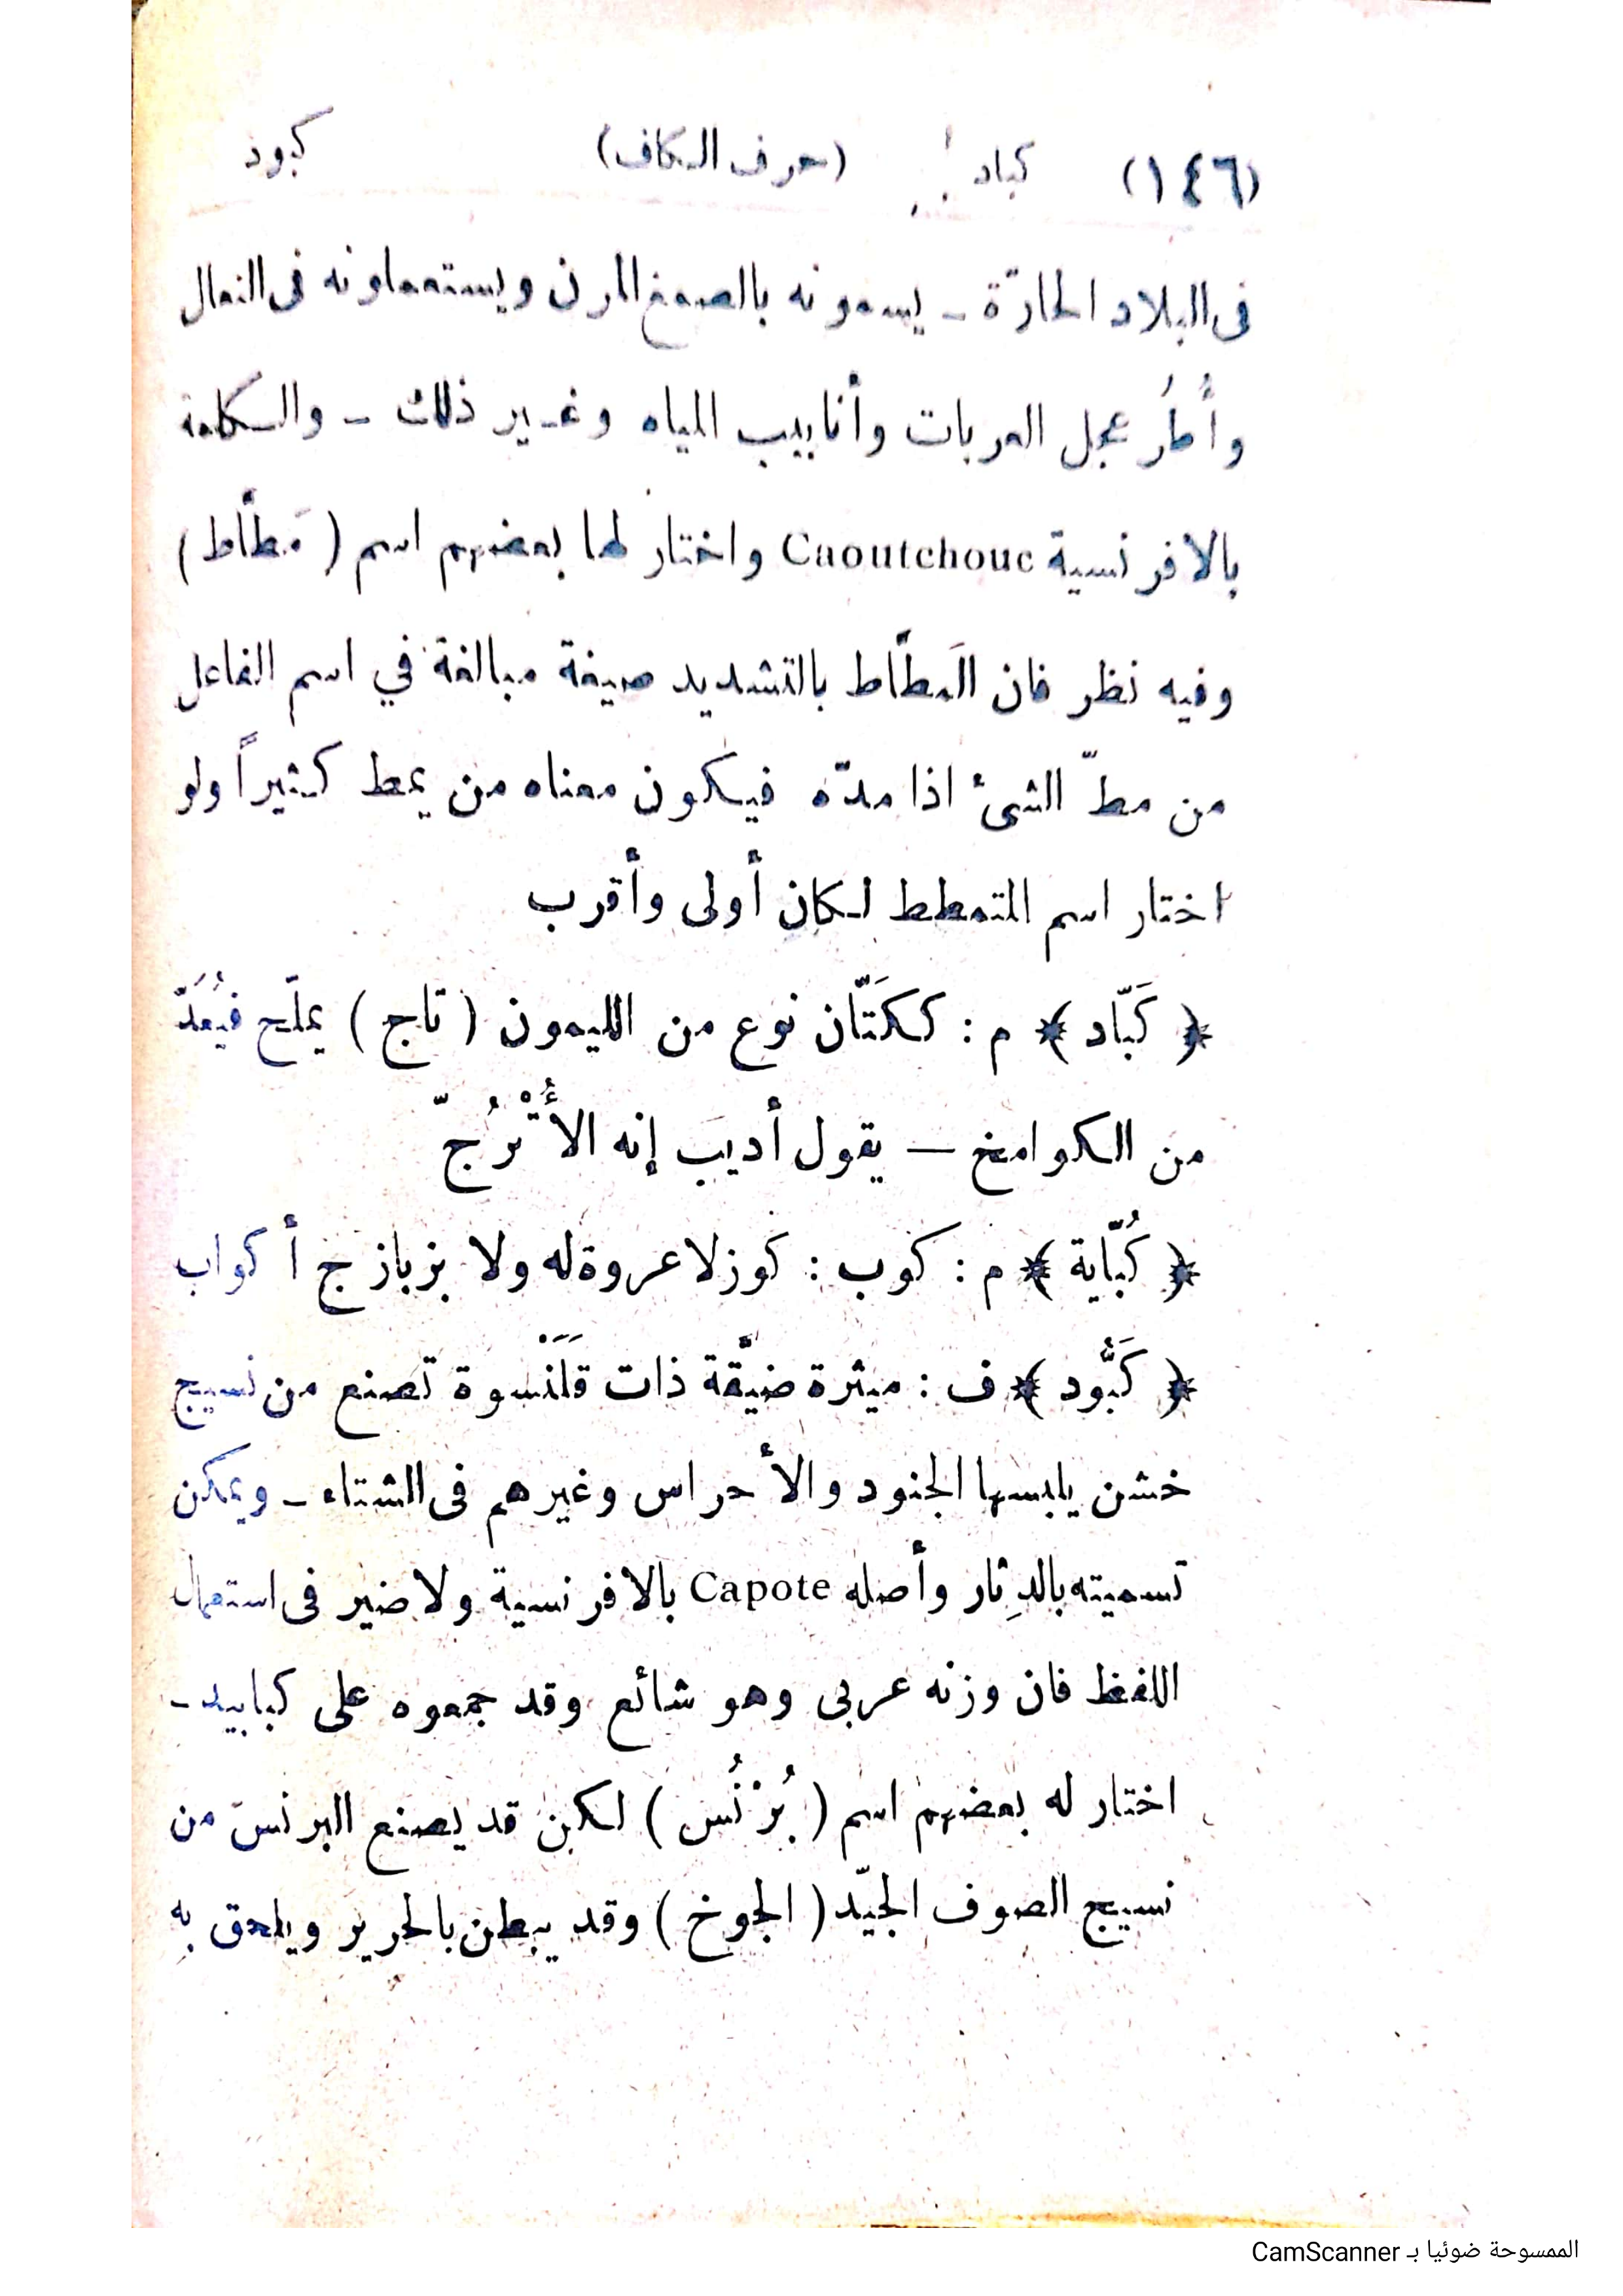 (١٤٦) كباد (حرف الكاف) كبود
فى البلاد الحارّة ـ يسمونه بالصمغ المرن ويستعملونه فى النعال
وأُطُر عجل العربات وأنابيب المياه وغير ذلك ـ والكلمة
بالافرنسية Caoutchouc واختار لها بعضهم اسم ( مَطّاط )
وفيه نظر فان المَطّاط بالتشديد صيغة مبالغة في اسم الفاعل
من مطّ الشىء اذا مدّه فيكون معناه من يمط كثيراً ولو
اختار اسم المتمطط لكان أولى وأقرب
﴿ كَبّاد ﴾ م : ككَتّان نوع من الليمون ( تاج ) يملّح فيُعَدّ
من الكوامخ — يقول أديب إنه الأُتْرُجّ
﴿ كُبّاية ﴾ م : كوب : كوز لا عروة له ولا بزباز ج أكواب
﴿ كَبُّود ﴾ ف : ميثرة ضيّقة ذات قَلَنْسوة تصنع من نسيج
خشن يلبسها الجنود والأحراس وغيرهم فى الشتاء ـ ويمكن
تسميته بالدِثار وأصله Capote بالافرنسية ولا ضير فى استعمال
اللفظ فان وزنه عربى وهو شائع وقد جمعوه على كبابيد ـ
اختار له بعضهم اسم ( بُرْنُس ) لكن قد يصنع البرنس من
نسيج الصوف الجيّد ( الجوخ ) وقد يبطن بالحرير ويلحق به
الممسوحة ضوئيا بـ CamScanner